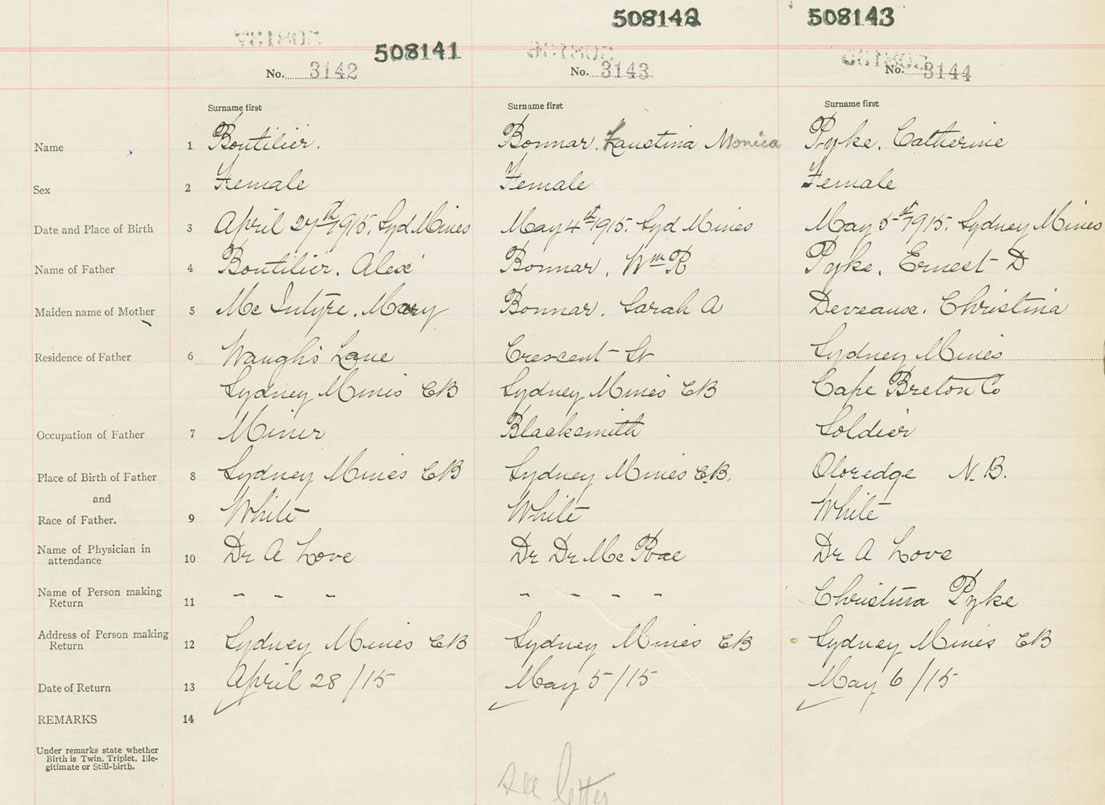 508141 508142 508143
No. 3142 No. 3143 No. 3144
Surname first Surname first Surname first
Name 1 Boutilier. Bonnar, Faustina Monica Pyke, Catherine
Sex 2 Female Female Female
Date and Place of Birth 3 April 27th 1915. Syd Mines May 4th 1915. Syd Mines May 5th 1915. Sydney Mines
Name of Father 4 Boutilier. Alex Bonnar, Wm R Pyke. Ernest D
Maiden name of Mother 5 Mc Intyre. Mary Bonnar, Sarah A Deveaux. Christina
Residence of Father 6 Waugh's Lane Crescent St Sydney Mines
Sydney Mines CB Sydney Mines CB Cape Breton Co
Occupation of Father 7 Miner Blacksmith Soldier
Place of Birth of Father 8 Sydney Mines CB Sydney Mines C.B. N.B.
and
Race of Father. 9 White White White
Name of Physician in
attendance 10 Dr A Love Dr Dr McRae Dr A Love
Name of Person making
Return 11 - - - - - - - Christina Pyke
Address of Person making
Return 12 Sydney Mines CB Sydney Mines CB Sydney Mines CB
Date of Return 13 April 28/15 May 5/15 May 6/15
REMARKS 14
Under remarks state whether
Birth is Twin, Triplet, Ille-
gitimate or Still-birth.
see letter